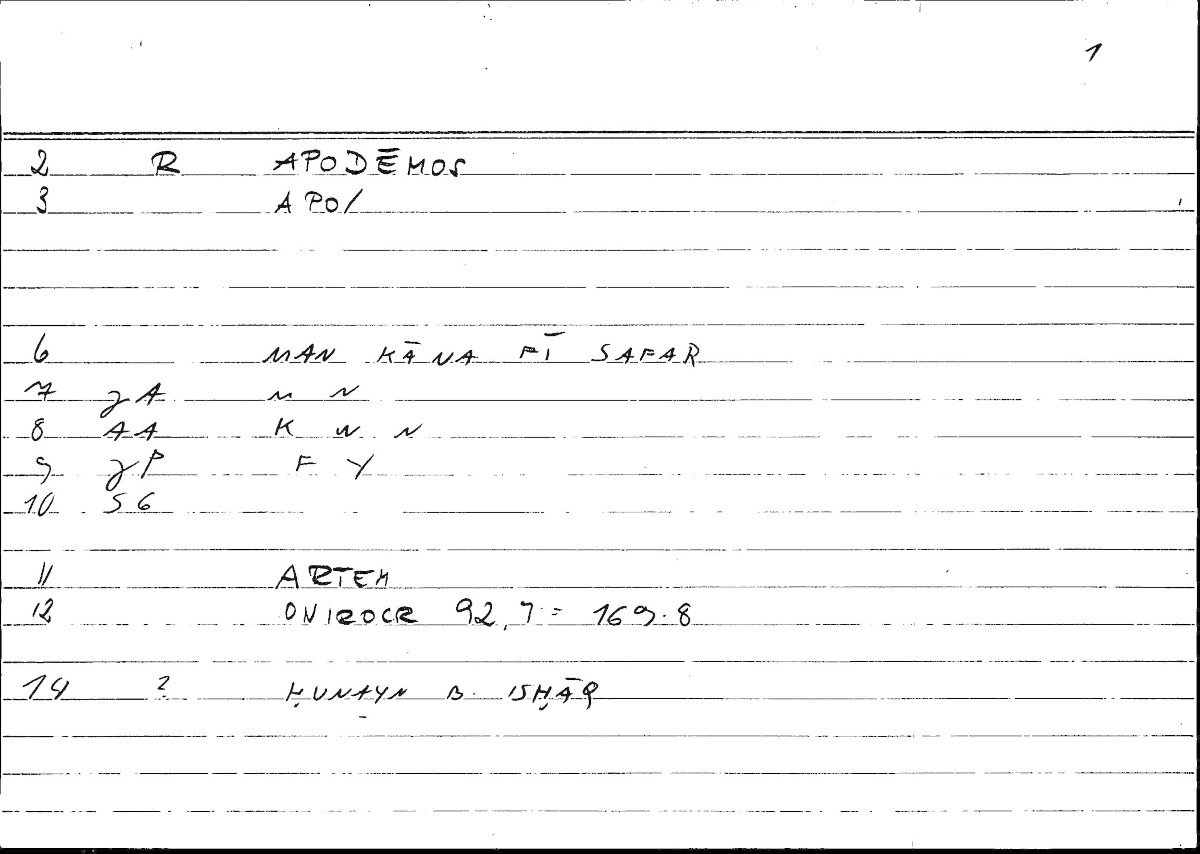 1
2 R APODĒMOS
3 APO/
6 MAN KĀNA FĪ SAFAR
7 gA M N
8 AA K W N
9 gP F Y
10 SG
11 ARTEM
12 ONIROCR 92,7 = 169.8
14 ? ḤUNAYN B. ISḤĀQ